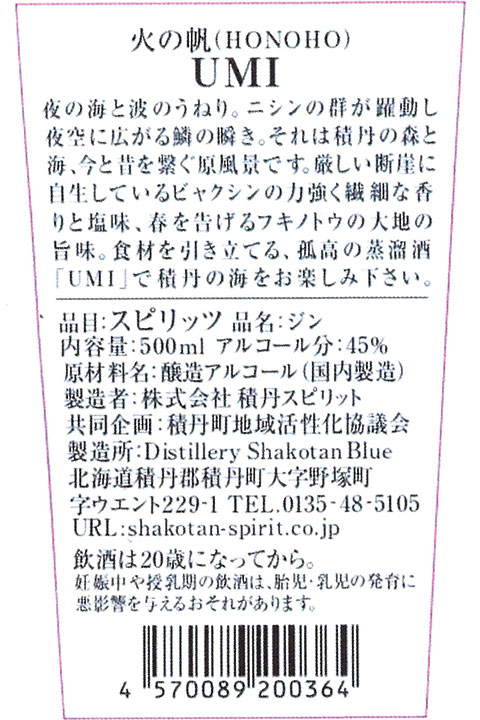 火の帆(HONOHO)
UMI
夜の海と波のうねり。ニシンの群が躍動し
夜空に広がる鱗の瞬き。それは積丹の森と
海、今と昔を繋ぐ原風景です。厳しい断崖に
自生しているビャクシンの力強く繊細な香
りと塩味、春を告げるフキノトウの大地の
旨味。食材を引き立てる、孤高の蒸溜酒
「UMI」で積丹の海をお楽しみ下さい。
品目:スピリッツ 品名:ジン
内容量:500ml アルコール分:45%
原材料名:醸造アルコール(国内製造)
製造者:株式会社 積丹スピリット
共同企画:積丹町地域活性化協議会
製造所:Distillery Shakotan Blue
北海道積丹郡積丹町大字野塚町
字ウエント229-1 TEL.0135-48-5105
URL:shakotan-spirit.co.jp
飲酒は20歳になってから。
妊娠中や授乳期の飲酒は、胎児・乳児の発育に
悪影響を与えるおそれがあります。
4 570089 200364